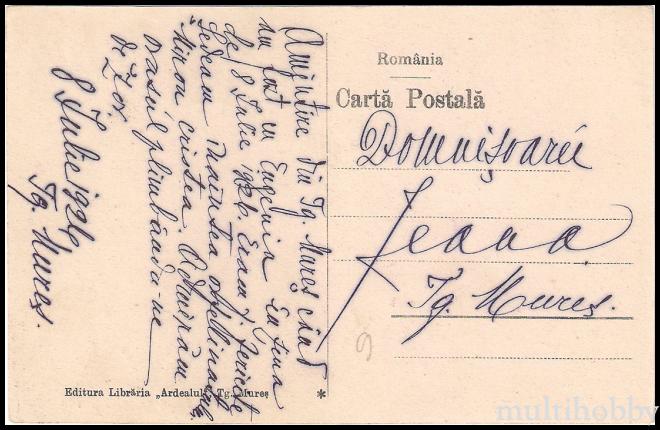 România
Cartă Postală
Domnișoarei
Jeana
Tg. Mureș.
Amintire din Tg. Mureș când
am fost cu Eugenia în ziua
de 8 Iulie 1926. Eram fericite
Ședeam înaintea
Miron Cristea. Admirăm
orașul plimbându-ne
de zor
8 Iulie 1926
Tg. Mureș.
9
Editura Librăria „Ardealul" Tg. Mureș
*
multihobby